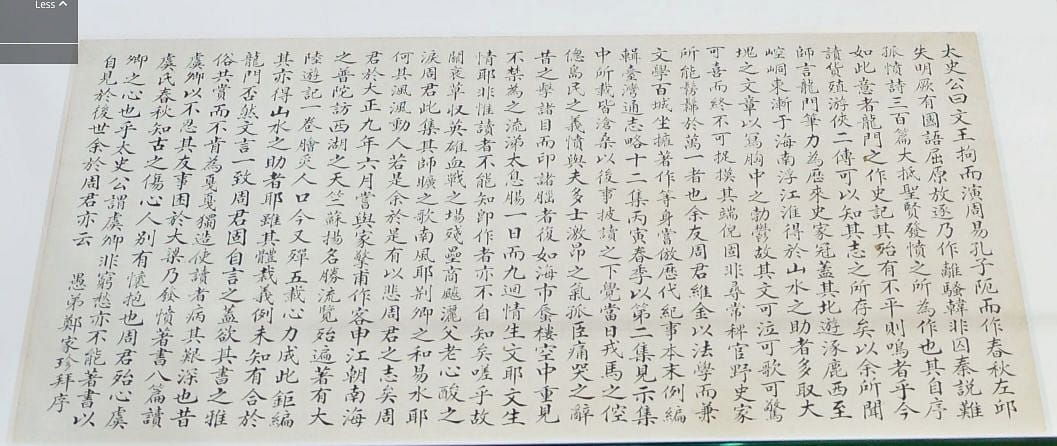 Less
太史公曰文王拘而演周易孔子阨而作春秋左邱
失明厥有國語屈原放逐乃作離騷韓非囚秦說難
孤憤詩三百篇大抵聖賢發憤之所為作也其自序
如此意者龍門之作史記其殆有不平則鳴者乎今
讀貨殖游俠二傳可以知其志之所存矣以余所聞
師言龍門筆力為歷來史家冠蓋其北遊涿鹿西至
崆峒東漸于海南浮江淮得於山水之助者多取大
塊之文章以寫胸中之勃鬱故其文可泣可歌可驚
可喜而終不可捉摸其端倪固非尋常稗官野史家
所能髣髴於萬一者也余友周君維金以法學而兼
文學百城坐擁著作等身嘗倣歷代紀事本末例編
輯臺灣通志略十二集丙寅春季以第二集見示集
中所載皆滄桑以後事披讀之下覺當日戎馬之倥
傯島民之義憤與夫多士激昂之氣孤臣痛哭之辭
昔之擊諸目而印諸腦者復如海市蜃樓空中重見
不禁為之流涕太息腸一日而九迴情生文耶文生
情耶非惟讀者不能知即作者亦不自知矣嗟乎故
關哀草收英雄血戰之場殘壘商飈灑父老心酸之
淚周君此集其師曠之歌南風耶荊卿之和易水耶
何其渢渢動人若是余於是有以悲周君之志矣周
君於大正九年六月嘗與家擎甫作客申江朝南海
之普陀訪西湖之天竺蘇揚名勝流覽殆遍著有大
陸遊記一卷膾炙人口今又殫五載心力成此鉅編
其亦得山水之助者耶雖其體裁義例未知有合於
龍門否然文言一致周君固自言之蓋欲其書之雅
俗共賞而不肯為戛戛獨造使讀者病其艱深也昔
虞卿以不忍其友事困於大梁乃發憤著書八篇讀
虞氏春秋知古之傷心人別有懷抱也周君殆心虞
卿之心也乎太史公謂虞卿非窮愁亦不能著書以
自見於後世余於周君亦云
愚弟鄭家珍拜序